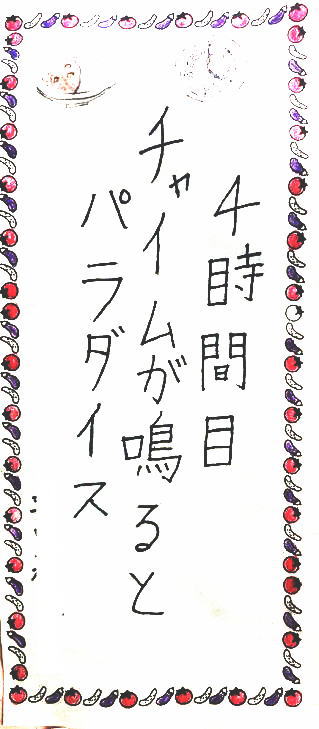 4時間目
チャイムが鳴ると
パラダイス